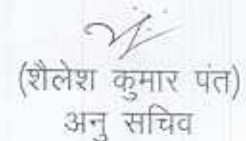 (शैलेश कुमार पंत)
अनु सचिव